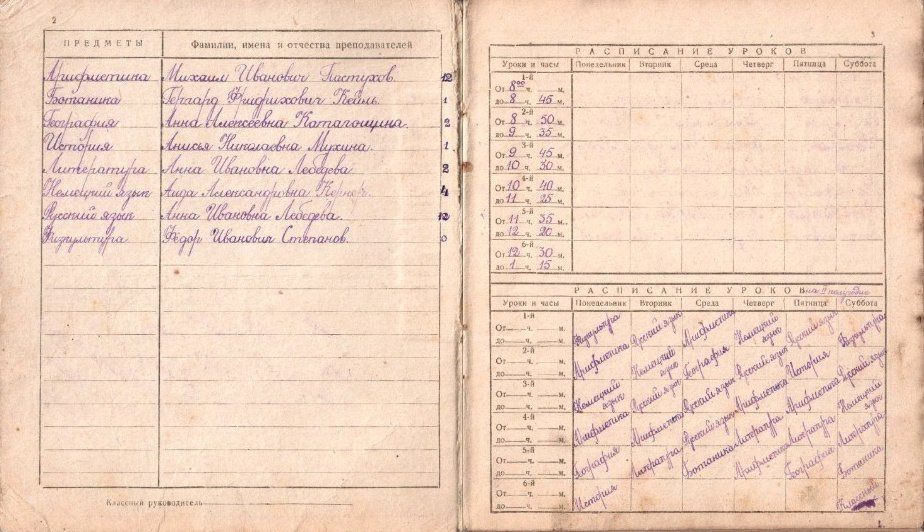 2
ПРЕДМЕТЫ Фамилии, имена и отчества преподавателей
Арифметика Михаил Иванович Пастухов. 12
Ботаника Гергард Фридрихович Кейль. 1
География Анна Алексеевна Катагощина. 2
История Анисья Николаевна Мухина. 1
Литература Анна Ивановна Лебедева. 2
Немецкий язык Аида Александровна 4
Русский язык Анна Ивановна Лебедева. 12
Физкультура Фёдор Иванович Степанов. 0
Классный руководитель
3
РАСПИСАНИЕ УРОКОВ
Уроки и часы Понедельник Вторник Среда Четверг Пятница Суббота
1-й
От 8 00 м.
до 8 ч. 45 м.
2-й
От 8 ч. 50 м.
до 9 ч. 35 м.
3-й
От 9 ч. 45 м.
до 10 ч. 30 м.
4-й
От 10 ч. 40 м.
до 11 ч. 25 м.
5-й
От 11 ч. 35 м.
до 12 ч. 20 м.
6-й
От 12 ч. 30 м.
до 1 ч. 15 м.
РАСПИСАНИЕ УРОКОВ на II полугодие
Уроки и часы Понедельник Вторник Среда Четверг Пятница Суббота
1-й
От ч. м. Физкультура Русский язык Арифметика Немецкий язык Русский язык Физкультура
до ч. м.
2-й
От ч. м. Арифметика Немецкий язык География Русский язык История Русский язык
до ч. м.
3-й
От ч. м. Немецкий язык Русский язык Русский язык Арифметика Арифметика Немецкий язык
до ч. м.
4-й
От ч. м. Арифметика Арифметика Русский язык Литература Литература Литература
до ч. м.
5-й
От ч. м. География Литература Ботаника Арифметика География Ботаника
до ч. м.
6-й
От ч. м. История Классный
до ч. м.